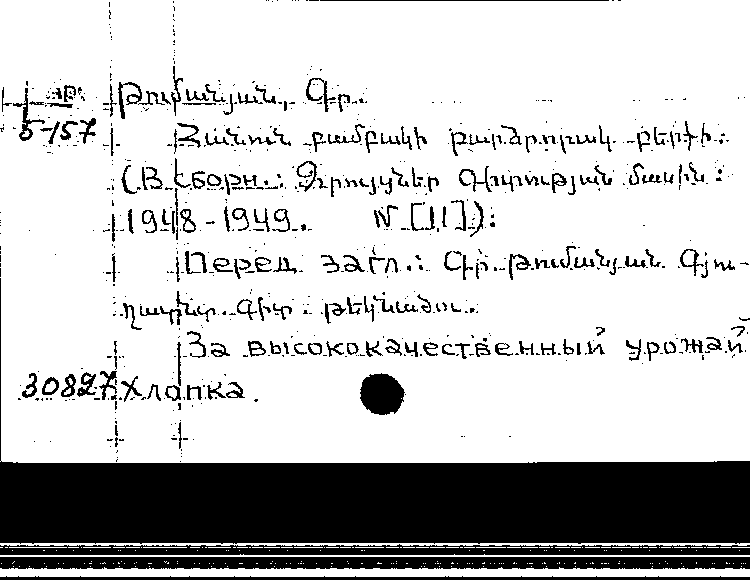 ар. Թումանյան, Գր.
5-157 Հանուն բամբակի բարձրորակ բերքի:
(В сборн.: Զրույցներ Գիտության մասին:
1948-1949. N [11]):
Перед загл.: Գր. Թումանյան Գյու-
ղատնտ. գիտ. թեկնածու.
За высококачественный урожай
30827 хлопка.